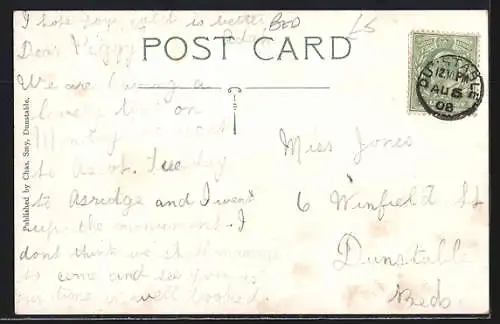 I hope your cold is better
BED
£5
POST CARD
Dear Piggy
We are having a
lovely time on
Monday we went
to Tuesday
to Asridge and I went
up the monument. I
dont think we shall manage
to come and see you
our time is well booked.
Published by Chas. Smy, Dunstable.
DUNSTABLE
12 PM
AU 5
08
Miss Jones
6 Winfield St
Dunstable
Beds.